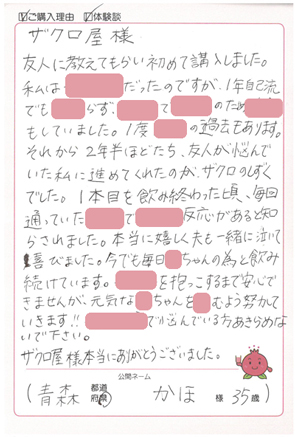 ☑ご購入理由 ☑体験談
ザクロ屋様
友人に教えてもらい初めて購入しました。
私は だったのですが、1年自己流
でも らず、 て のため
もしていました。1度 の過去もあります。
それから2年半ほどたち、友人が悩んで
いた私に進めてくれたのが、ザクロのしずく
でした。1本目を飲み終わった頃、毎回
通っていた で 反応があると知
らされました。本当に嬉しく夫も一緒に泣いて
喜びました。今でも毎日 ちゃんの為と飲み
続けています。 を抱っこするまで安心で
きませんが、元気な ちゃんを むよう努力して
いきます!! で悩んでいる方あきらめな
いで下さい。
ザクロ屋様本当にありがとうございました。
公開ネーム
(青森 都道府県 かほ 様 35歳)